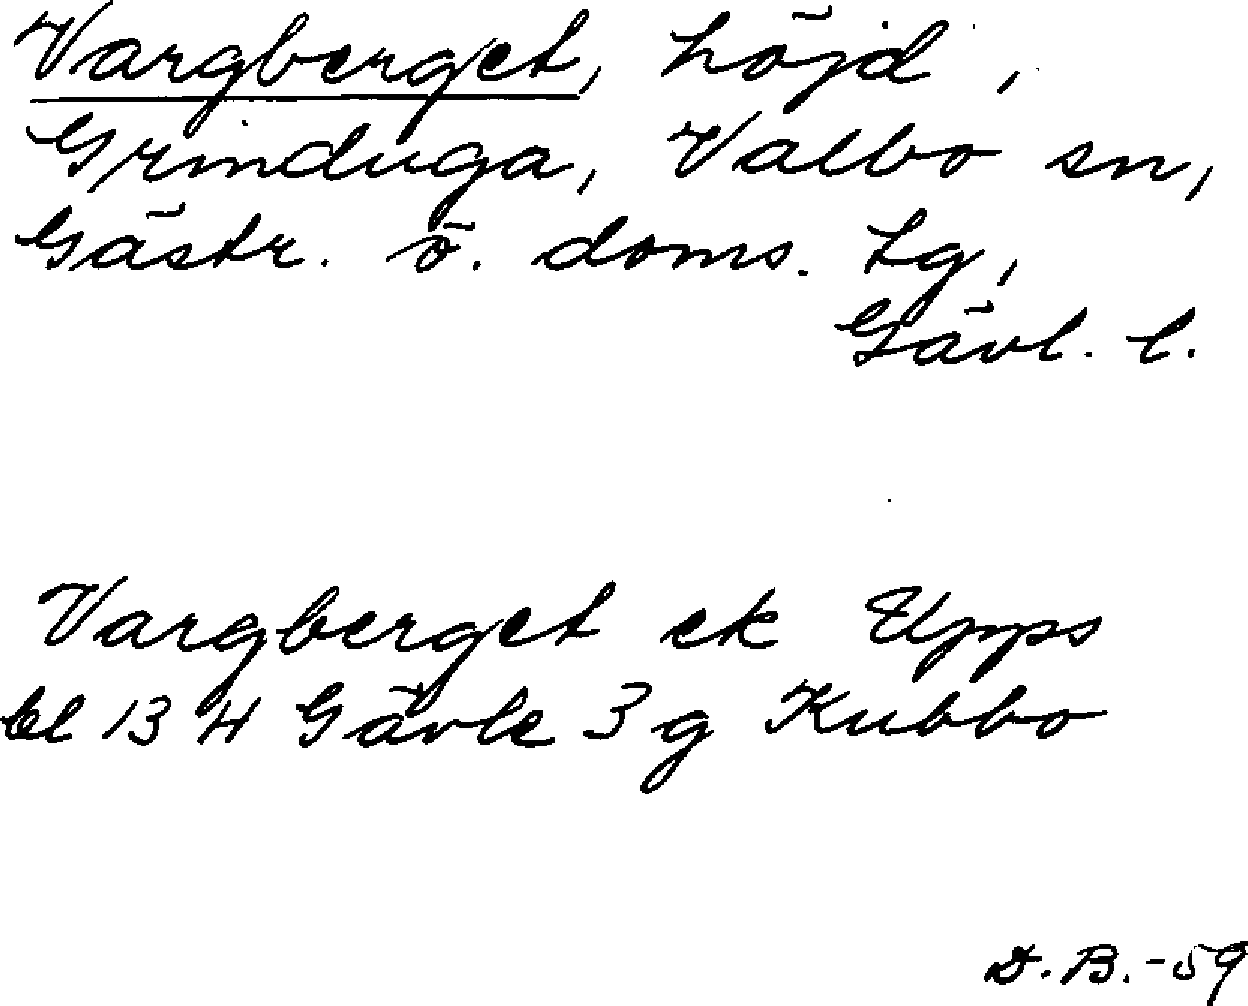 Vargberget, höjd,
Grinduga, Valbo sn,
Gästr. ö. doms. tg,
Gävl. l.
Vargberget ek Upps
bl 134 Gävle 3 g Kubbo
D.B.-59